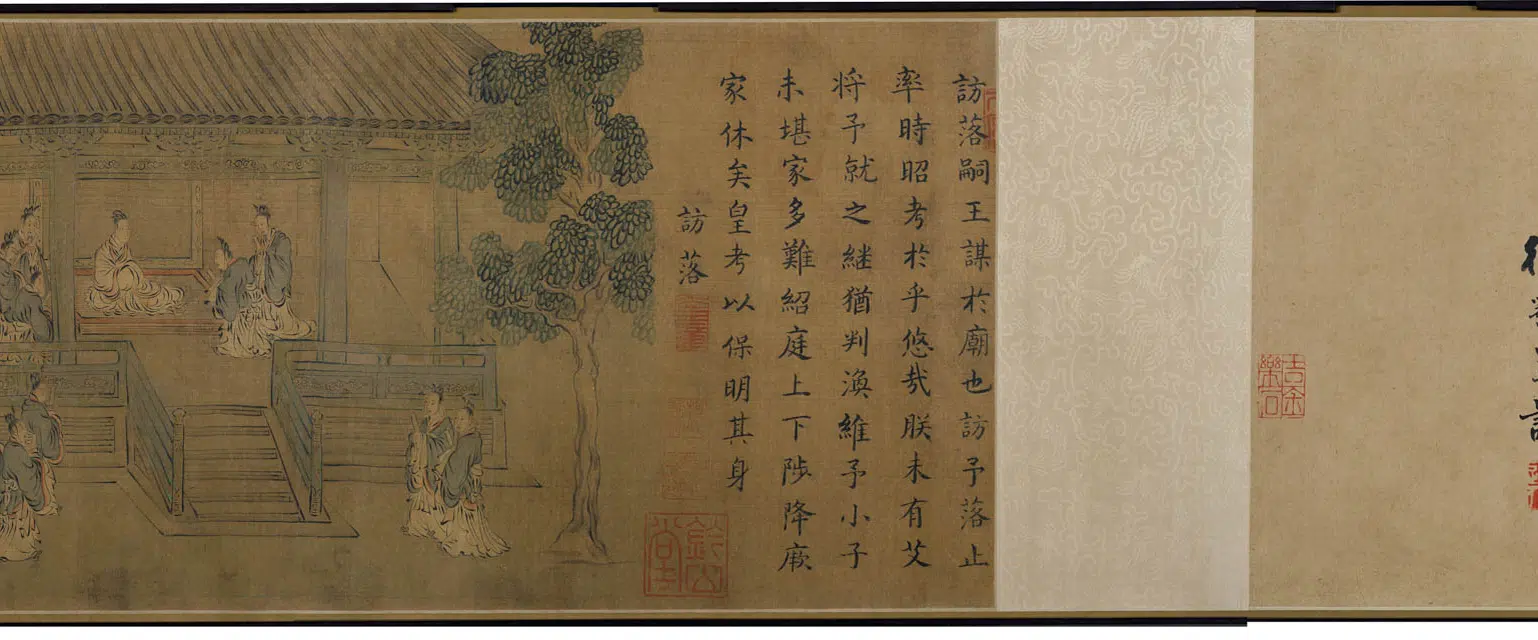 訪落嗣王謀於廟也訪予落止
率時昭考於乎悠哉朕未有艾
将予就之継猶判渙維予小子
未堪家多難紹庭上下陟降厥
家休矣皇考以保明其身
訪落